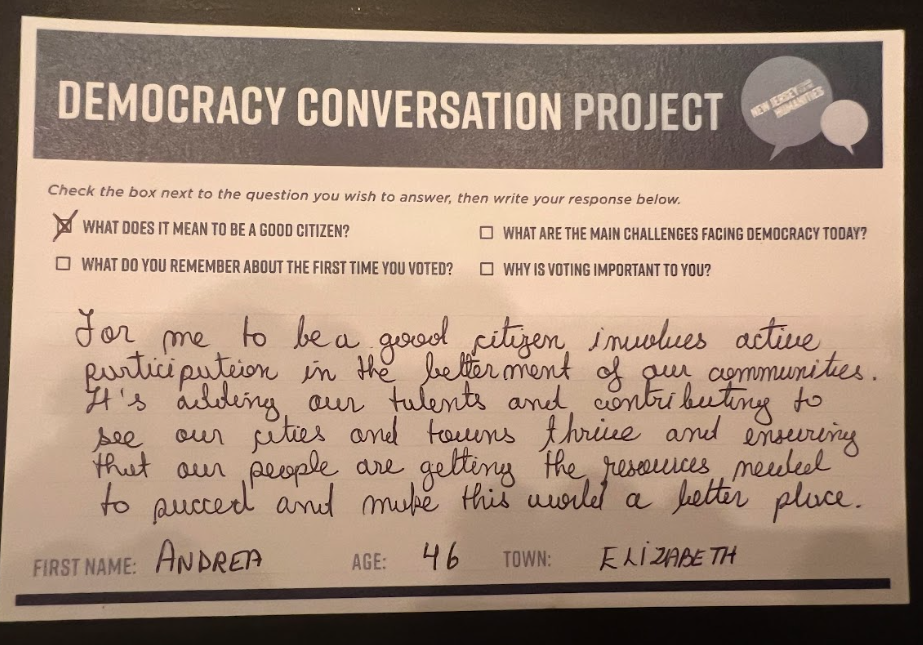 DEMOCRACY CONVERSATION PROJECT
NEW JERSEY
HUMANITIES
Check the box next to the question you wish to answer, then write your response below.
WHAT DOES IT MEAN TO BE A GOOD CITIZEN?
WHAT ARE THE MAIN CHALLENGES FACING DEMOCRACY TODAY?
WHAT DO YOU REMEMBER ABOUT THE FIRST TIME YOU VOTED?
WHY IS VOTING IMPORTANT TO YOU?
For me to be a good citizen involves active
participation in the betterment of our communities.
It's adding our talents and contributing to
see our cities and towns thrive and ensuring
that our people are getting the resources needed
to succed and make this world a better place.
FIRST NAME: ANDREA AGE: 46 TOWN: ELIZABETH